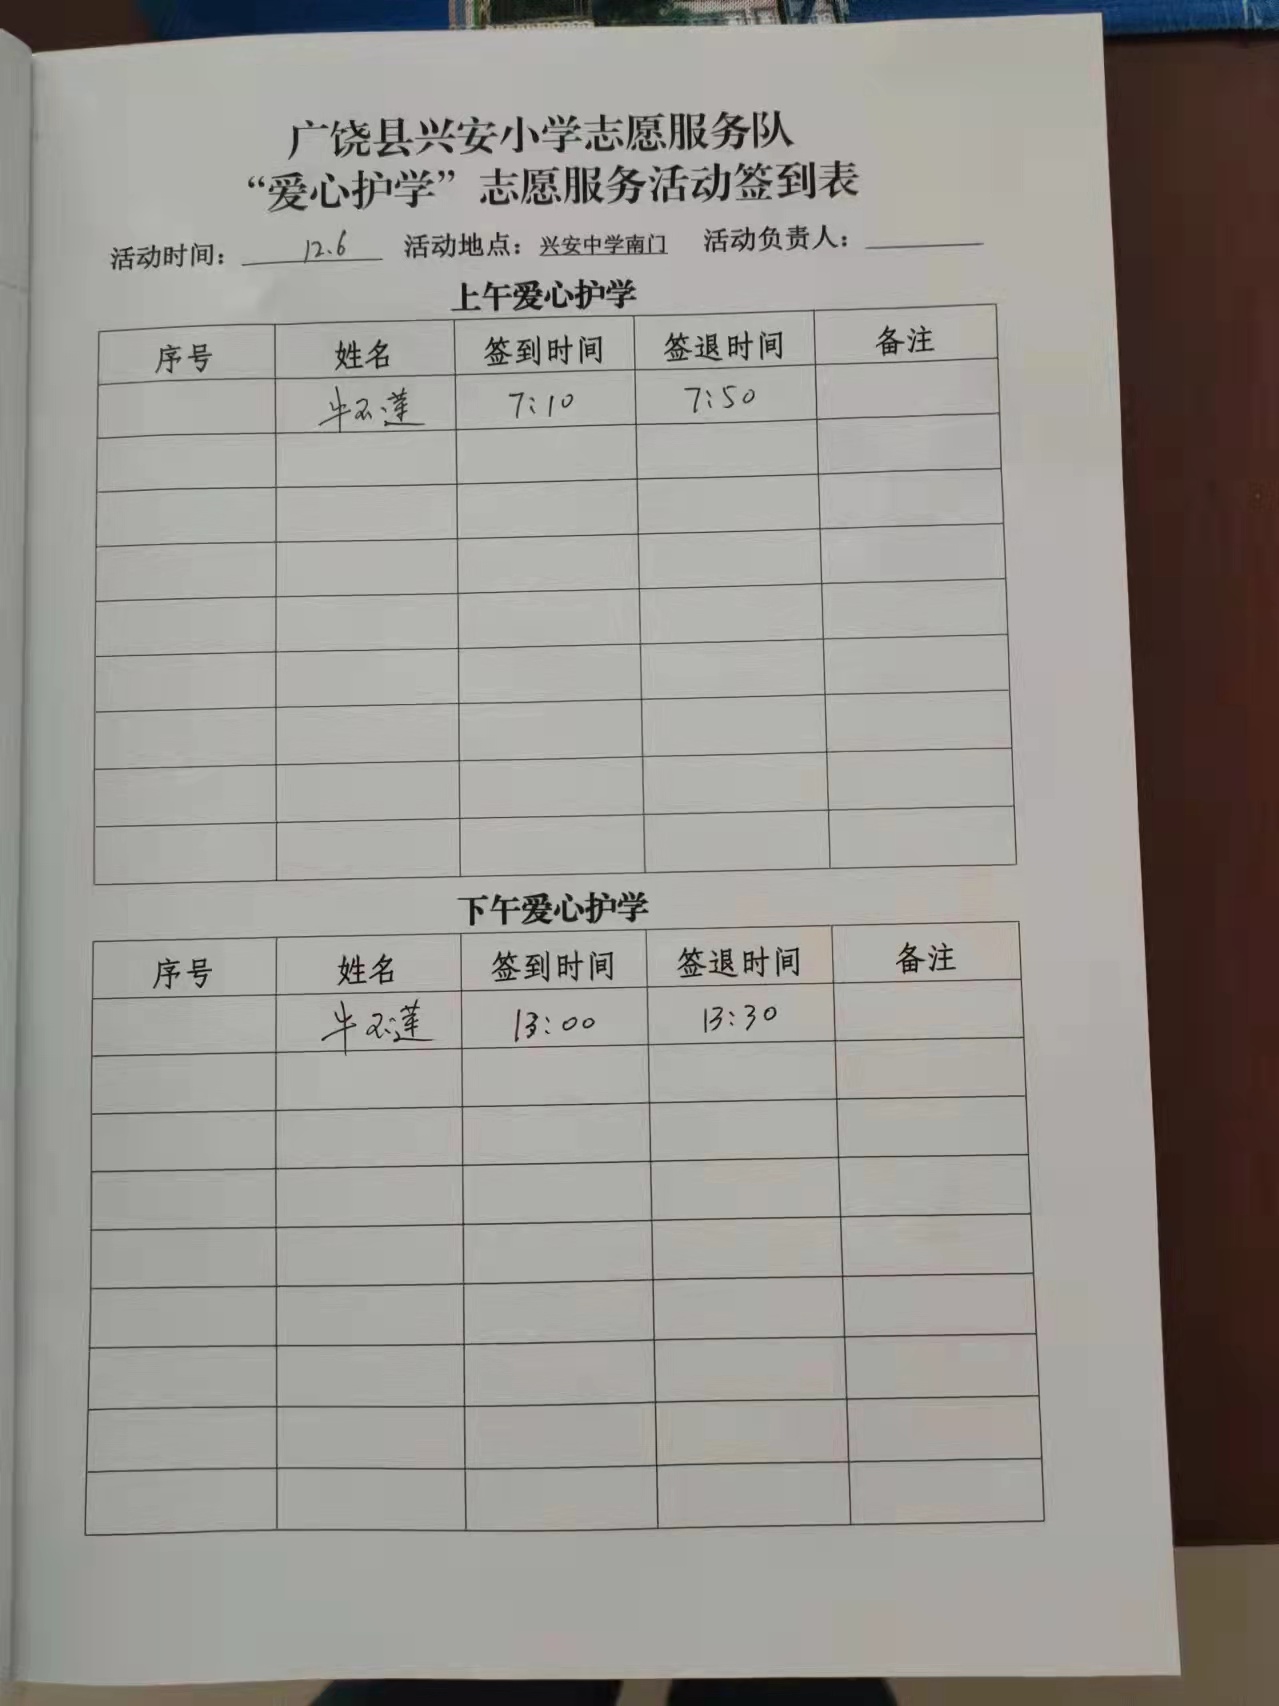 广饶县兴安小学志愿服务队
“爱心护学”志愿服务活动签到表
活动时间： 12.6 活动地点：兴安中学南门 活动负责人：
上午爱心护学
序号 姓名 签到时间 签退时间 备注
牛 莲 7:10 7:50
下午爱心护学
序号 姓名 签到时间 签退时间 备注
牛 莲 13:00 13:30